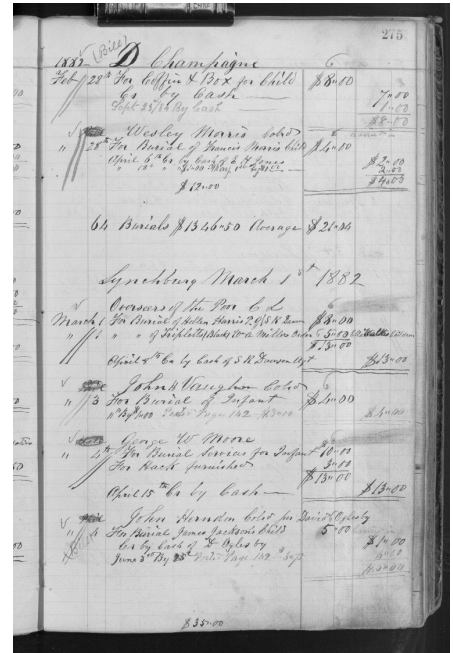 275
1882 (Bill) D Champagne
Feb 28th For Coffin & Box for Child $8.00
Cr by Cash 7.00
Sept 23/84 By Cash 1.00
$8.00
Wesley Morris Cold
" 28th For Burial of Francis Morris Child $4.00
April 6th Cr by Cash of Jones $2.00
2.00
$4.00
$12.00
64 Burials $1346.50 Average $21.04
Lynchburg March 1st 1882
Overseers of the Poor C L
March 1 For Burial of Hellen Harris $8.00
" 1 " " of Triplets Black Order 5.00
$13.00
April 8th Cr by Cash of S K Dawson Agt $13.00
John H Vaughn Cold
" 3 For Burial of Infant $4.00
Page 142 $4.00
George W Moore
" 4th For Burial Services for Infant $10.00
For Hack furnished 3.00
$13.00
April 15th Cr by Cash $13.00
John Herndon Cold per David Oglesby
" 4 For Burial James Jackson's Child 5.00
Cr by Cash of D Oglesby $1.00
June 3rd By Page 142
$35.00